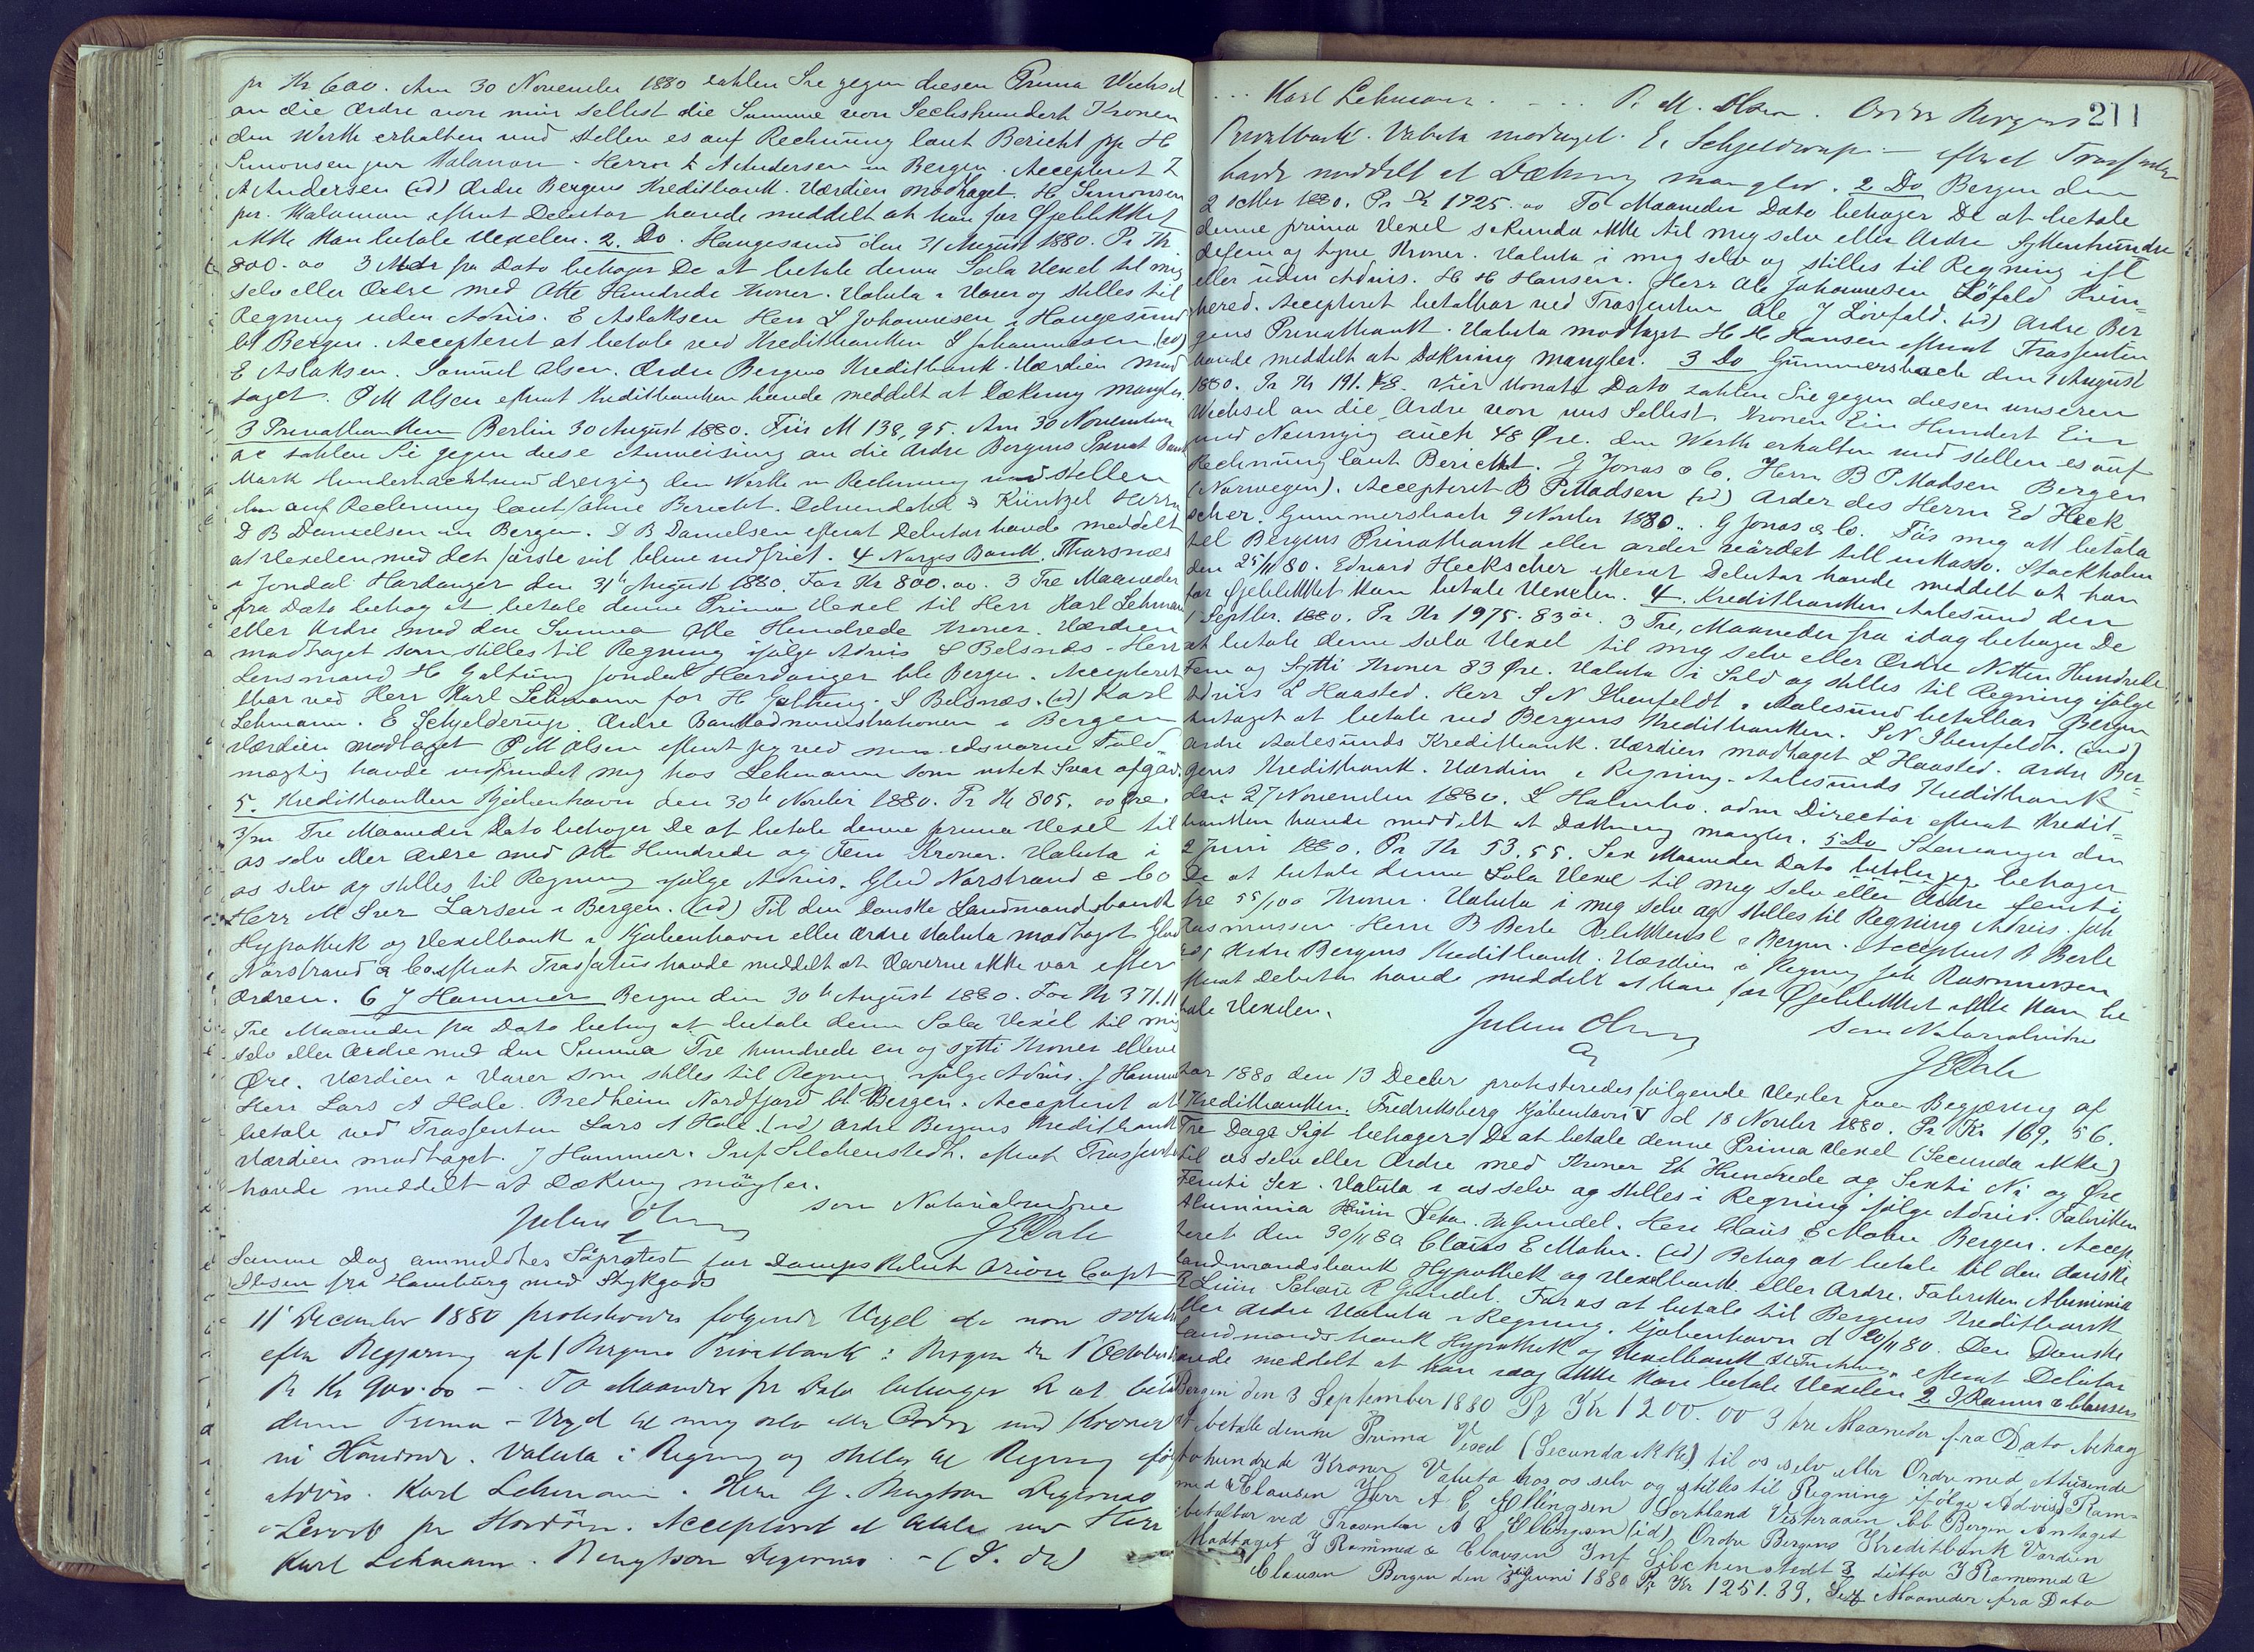 pr Kr 600. Am 30 November 1880 zahlen Sie gegen diesen Prima Wechsel
an die Ordre von mir selbst die Summe von Sechshundert Kronen
den Werth erhalten und stellen es auf Rechnung laut Bericht pp H
Simonsen Herrn A Andersen in Bergen. Accepteret
A Andersen (id) Ordre Bergens Kreditbank. Værdien modtaget. H. Simonsen
efterat Debitor havde meddelt at han for Øjeblikket
ikke kan betale Vexelen. 2. Do. Haugesund den 31 August 1880. Pr Kr
800.00 3 Mdr fra Dato behager De at betale denne Sola Vexel til mig
selv eller Ordre med Otte Hundrede Kroner. Valuta i Varer og stilles til
Regning uden Advis. E Aslaksen Herr L Johannesen i Haugesund
bt Bergen. Accepteret at betale ved Kreditbanken L Johannesen (id)
E Aslaksen. Samuel Olsen. Ordre Bergens Kreditbank. Værdien mod
taget. P M Olsen efterat Kreditbanken havde meddelt at Dækning mangler.
3 Privatbanken Berlin 30 August 1880. Für M 138,95. Am 30 November
zahlen Sie gegen diese Anweisung an die Ordre Bergens Privat Bank
Mark Hundertachtunddreizig den Werth in Rechnung und stellen
ihn auf Rechnung laut/ohne Bericht. & Küntzel Herrn
D B Danielsen in Bergen. D B Danielsen efterat Debitor havde meddelt
at Vexelen med det første vil blive indfriet. 4 Norges Bank. Thorsnæs
i Jondal Hardanger den 31te August 1880. For Kr 800.00. 3 Tre Maaneder
fra Dato behag at betale denne Prima Vexel til Herr Karl Lehmann
eller Ordre med den Summa Otte Hundrede Kroner. Værdien
modtaget som stilles til Regning ifølge Advis S Belsnæs - Herr
Lensmand H Galtung Jondal Hardanger bt Bergen. Accepteret
bar ved Herr Karl Lehmann for H Galtung. S Belsnæs. (id) Karl
Lehmann. E Schjelderup. Ordre Bankadministrationen i Bergen
Værdien modtaget P M Olsen efterat jeg ved min edsvorne Fuld-
mægtig havde indfundet mig hos Lehmann som intet Svar afgav.
5. Kreditbanken Kjøbenhavn den 30te Novbr 1880. Pr Kr 805. 00 Øre.
3/m Tre Maaneder Dato behager De at betale denne prima Vexel til
os selv eller Ordre med Otte Hundrede og Fem Kroner. Valuta i
os selv og stilles til Regning ifølge Advis. Glud Norstrand & Co
Herr M Larsen i Bergen. (id) Til den Danske Landmandsbank
Hypothek og Vexelbank i Kjøbenhavn eller Ordre Valuta modtaget Glud
Norstrand & Co efterat Trassatus havde meddelt at Varerne ikke var efter
Ordren. 6 J Hammer Bergen den 30te August 1880. For Kr 371.11
Tre Maaneder fra Dato behag at betale denne Sola Vexel til mig
selv eller Ordre med den Summa Tre hundrede en og sytti Kroner elleve
Øre. Værdien i Varer som stilles til Regning ifølge Advis. J Hammer
Herr Lars A Hole. Bredheim Nordfjord bt Bergen. Accepteret at
betale ved Trassenten Lars A Hole. (id) Ordre Bergens Kreditbank
Værdien modtaget. J Hammer. Inf Silchenstedt. efterat Trassenten
havde meddelt at Dækning mangler.
Julius Olsen som Notarialvidne
JEDale
Samme Dag anmeldtes Søprotest for Dampskibet Orion Capt
Ibsen fra Hamburg med Stykgods
11 December 1880 protesteredes følgende Vexel de non solut
efter Begjæring af 1 Bergens Privatbank: Bergen den 1 October
Pr Kr 900.00 - To Maaneder fra Dato behager De at betale
denne Prima - Vexel til mig selv eller Ordre med Kroner
ni Hundrede. Valuta i Regning og stilles til Regning ifølge
Advis. Karl Lehmann. Herr G. Bengtson Degernæs
i Lervik pr Hordøn. Accepteret at betale ved Herr
Karl Lehmann. Bengtson Degernæs. - (I. dr)
211
Karl Lehmann. P. M. Olsen. Ordre Bergens
Privatbank. Valuta modtaget. E. Schjelderup. - efterat Trassenten
havde meddelt at Dækning mangler. 2 Do Bergen den
2 octbr 1880. Pr Kr 1725.00 To Maaneder Dato behager De at betale
denne prima Vexel sekunda ikke til mig selv eller Ordre Syttenhundre
defem og tyve Kroner. Valuta i mig selv og stilles til Regning ifl
eller uden Advis. H H Hansen. Herr Ole Johannesen Löfald Kvin-
hered. Accepteret betalbar ved Trassenten Ole J Lövfald. (id) Ordre Ber
gens Privatbank. Valuta modtaget H H Hansen efterat Trassenten
havde meddelt at Dækning mangler. 3 Do Gummersbach den 9 August
1880. Pr Kr 191.48. Vier Monate Dato zahlen Sie gegen diesen unseren
Wechsel an die Ordre von uns Selbst, Kronen Ein Hundert Ein
und Neunzig auch 48 Øre. den Werth erhalten und stellen es auf
Rechnung laut Bericht. G Jonas & Co. Herrn B P Madsen Bergen
(Norwegen). Accepteret B P Madsen (id) Order des Herrn Ed Heck
scher. Gummersbach 9 Novbr 1880.. G Jonas & Co. För mig att betala
till Bergens Privatbank eller order värdet till inkasso. Stockholm
den 25/11 80. Edvard Heckscher efterat Debitor havde meddelt at han
for Øjeblikket kan betale Vexelen. 4. Kreditbanken Aalesund den
1 Septbr. 1880. Pr Kr 1975.83 ör. 3 Tre, Maaneder fra idag behager De
at betale denne sola Vexel til mig selv eller Ordre Nitten Hundrede
Fem og Sytti Kroner 83 Øre. Valuta i Sild og stilles til Regning ifølge
Advis L Haasted. Herr S N Ibenfeldt i Aalesund betalbar Bergen
Antaget at betale ved Bergens Kreditbanken. S N Ibenfeldt. (ind)
Ordre Aalesunds Kreditbank. Værdien modtaget L Haasted. Ordre Ber-
gens Kreditbank. Værdien i Regning. Aalesunds Kreditbank
den 27 November 1880. L Holmbo. adm Directör efterat Kredit-
banken havde meddelt at Dækning mangler. 5 Do Stavanger den
2 Juni 1880. Pr Kr 53.55. Sex Maaneder Dato betaler jeg behager
De at betale denne Sola Vexel til mig selv eller Ordre femti
tre 55/100 Kroner. Valuta i mig selv og stilles til Regning Advis. Joh
Rasmussen Herr B Berle Blikkensl i Bergen. Accepteret B Berle
(id) Ordre Bergens Kreditbank. Værdien i Regning Joh Rasmussen
efterat Debitor havde meddelt at han for Øjeblikket ikke kan be
tale Vexelen.
Julius Olsen som Notarialvidne
JEDale
Aar 1880 den 13 Decbr protesteredes følgende Vexler paa Begjæring af
1 Kreditbanken. Fredriksberg Kjøbenhavn V d 18 Novbr 1880. Pr Kr 169,56.
Tre Dage Sigt behager De at betale denne Prima Vexel (Secunda ikke)
til os selv eller Ordre med Kroner Et Hundrede og Sexti Ni og Øre
Femti Sex. Valuta i os selv og stilles i Regning ifølge Advis. Fabriken
Aluminia R Gundel. Herr Claus E Mohn Bergen. Accep
teret den 30/11 80 Claus E Mohn. (id) Behag at betale til den danske
Landmandsbank Hypothek og Vexelbank eller Ordre. Fabriken Aluminia
R Gundel. For os at betale til Bergens Kreditbank
eller Ordre Valuta i Regning. Kjøbenhavn d 20/11 80. Den Danske
Landmandsbank Hypothek og Vexelbank efterat Debitor
havde meddelt at han idag ikke kan betale Vexelen 2 J Ramm & Clausen
Bergen den 3 September 1880 Pr Kr 1200.00 3 tre Maaneder fra Dato behag
at betale denne Prima Vexel (Secunda ikke) til os selv eller Ordre med Ettusende
tohundrede Kroner Valuta hos os selv og stilles til Regning ifølge Advis J Ram-
med & Clausen Herr A E Ellingsen Sortland Visteraalen bt Bergen Antaget
betalbar ved Trasenten A E Ellingsen (id) Ordre Bergens Kreditbank Værdien
Modtaget J Rammed & Clausen Inf Silchenstedt 3 ditto J Rammed &
Clausen Bergen den Juni 1880 Pr Kr 1251.89. Sex Maaneder fra Dato